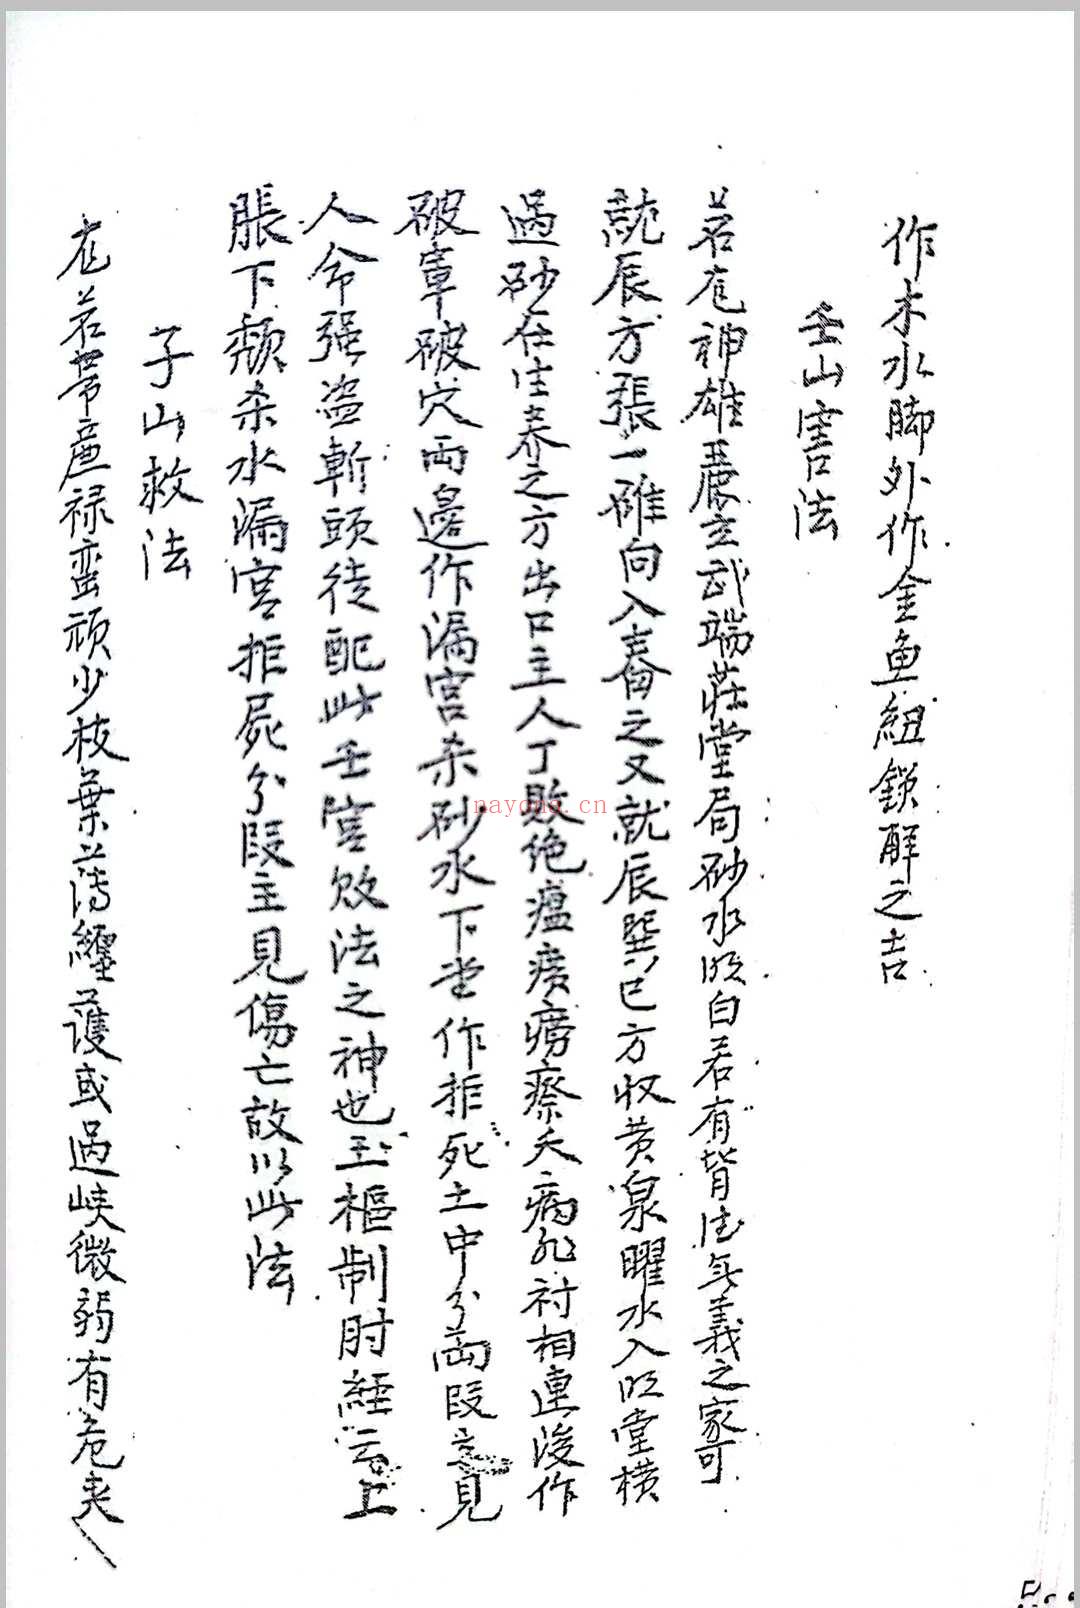 作木水脚外作金鱼紐鎖解之吉
壬山害法
若龙神雄麗玄武端莊堂局砂水明白若有背德無義之家可
就辰方張一碓向入舂之又就辰巽巳方収黄泉曜水入明堂横
過砂在生养之方出口主人丁敗绝瘟癀癆瘵夭病死衬相連後作
破軍破穴両邊作漏宫杀砂水下堂作拒死土中分両段主見
人命强盗斬頭徒配此壬宫败法之神也玉樞制肘經云上
脹下頽杀水漏宫拒屍分段主見傷亡故以此法
子山救法
龙若带產禄蛮顽少枝葉薄纏護或過峡微弱有危夹
nayona.cn